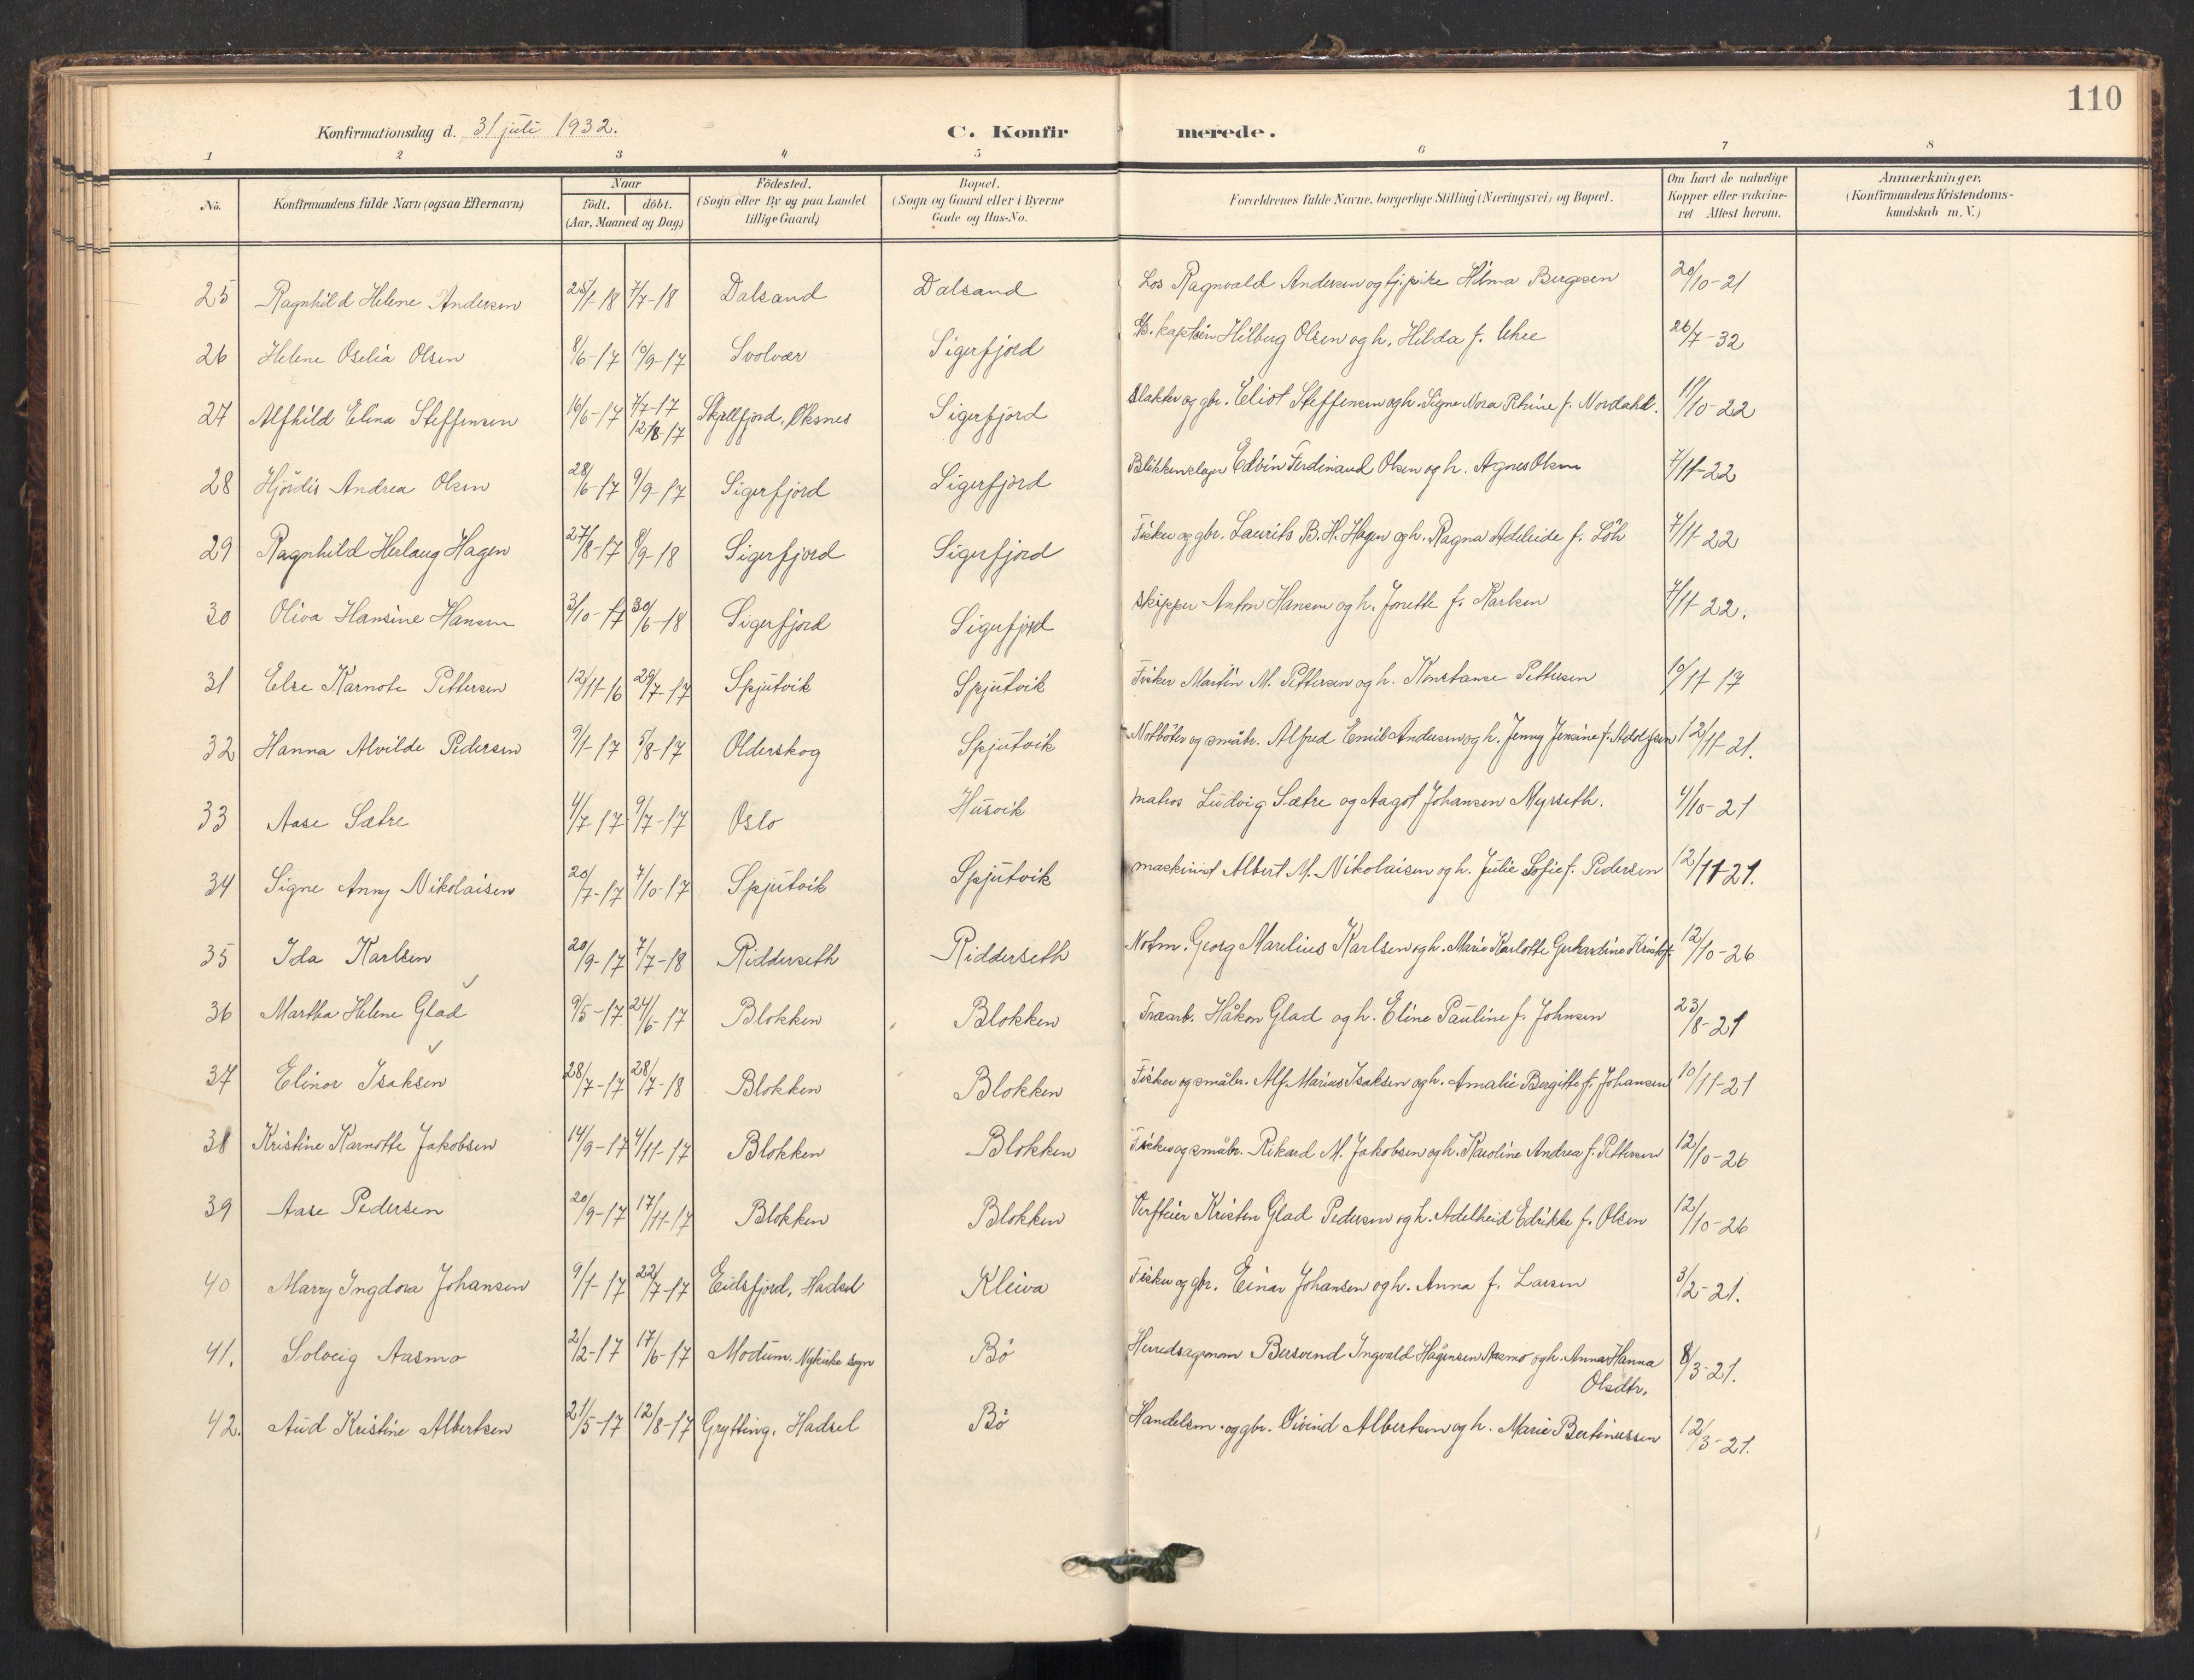 110
Konfirmationsdag d. 31 juli 1932.
C. Konfirmerede.
1 2 3 4 5 6 7 8
No. Konfirmandens fulde Navn (ogsaa Efternavn) Naar födt. döbt. (Aar, Maaned og Dag) Födested. (Sogn eller By og paa Landet tillige Gaard) Bopæl. (Sogn og Gaard eller i Byerne Gade og Hus-No. Forældrenes fulde Navne, borgerlige Stilling (Næringsvei) og Bopæl. Om havt de naturlige Kopper eller vaccineret Attest herom. Anmærkninger. (Konfirmandens Kristendomskundskab m. V.)
25 Ragnhild Helene Andersen 25/1-18 7/7-18 Dalsand Dalsand Los Ragnvald Andersen og fj. pike Hilma Bergesen 20/10-21
26 Helene Oselia Olsen 8/6-17 10/9-17 Svolvær Sigerfjord kaptein Hilberg Olsen og h. Hilda f. 26/7-32
27 Alfhild Elina Steffensen 16/6-17 7/7-17 12/8-17 Skjellfjord, Øksnes Sigerfjord Slakter og gbr. Eliot Steffensen og h. Signe Nora Petrine f. Nordahl. 11/10-22
28 Hjördis Andrea Olsen 28/6-17 9/9-17 Sigerfjord Sigerfjord Blikkenslager Edvin Ferdinand Olsen og h. Agnes Olsen 7/11-22
29 Ragnhild Herlaug Hagen 27/8-17 8/9-18 Sigerfjord Sigerfjord Fisker og gbr. Laurits B. H. Hagen og h. Ragna Adeleide f. Löh 7/11 22
30 Oliva Hansine Hansen 3/10-17 30/6-18 Sigerfjord Sigerfjord Skipper Anton Hansen og h. Jonette f. Karlsen 7/11 22.
31 Else Karnote Pettersen 12/11-16 29/7-17 Spjutvik Spjutvik Fisker Martin M. Pettersen og h. Konstanse Pettersen 10/11 17
32 Hanna Alvilde Pedersen 9/1-17 5/8-17 Olderskog Spjutvik Notböter og småbr. Alfred Emil Andersen og h. Jenny Jensine f. Adolfsen 12/11-21.
33 Aase Sætre 4/7-17 9/7-17 Oslo Husvik matros Ludvig Sætre og Aagot Johansen Myrseth. 4/10-21
34 Signe Anny Nikolaisen 20/7-17 7/10-17 Spjutvik Spjutvik maskinist Albert M. Nikolaisen og h. Julie Sofie f. Pedersen 12/11-21.
35 Ida Karlsen 20/9-17 7/7-18 Ridderseth Ridderseth Notm. Georg Marelius Karlsen og h. Marie Karlotte Gerhardine Kristof. 12/10-26
36 Martha Helene Glad 9/5-17 24/6-17 Blokken Blokken Træarb. Håkon Glad og h. Eline Pauline f. Johnsen 23/8-21
37 Elinor Isaksen 28/7-17 28/7-18 Blokken Blokken Fisker og småbr. Alf Marius Isaksen og h. Amalie Bergitte f. Johansen 10/11-21
38 Kristine Karnotte Jakobsen 14/9-17 4/11-17 Blokken Blokken Fisker og småbr. Rikard M. Jakobsen og h. Karoline Andrea f. Pettersen 12/10-26
39 Aase Pedersen 20/9-17 17/11-17 Blokken Blokken Verfteier Kristen Glad Pedersen og h. Adelheid Edrikke f. Olsen 12/10-26
40 Marry Ingdora Johansen 9/1-17 22/7-17 Eidsfjord, Hadsel Kleiva Fisker og gbr. Einar Johansen og h. Anna f. Larsen 3/2-21.
41. Solveig Aasmo 2/2-17 17/6-17 Modum, Nykirke sogn Bö Herredsagronom Bersvend Ingvald Hågensen Aasmo og h. Anna Hanna Olsdtr. 8/3-21.
42. Aud Kristine Albertsen 21/5-17 12/8-17 Grytting, Hadsel Bö Handelsm. og gbr. Öivind Albertsen og h. Marie Bertinussen 12/3-21.